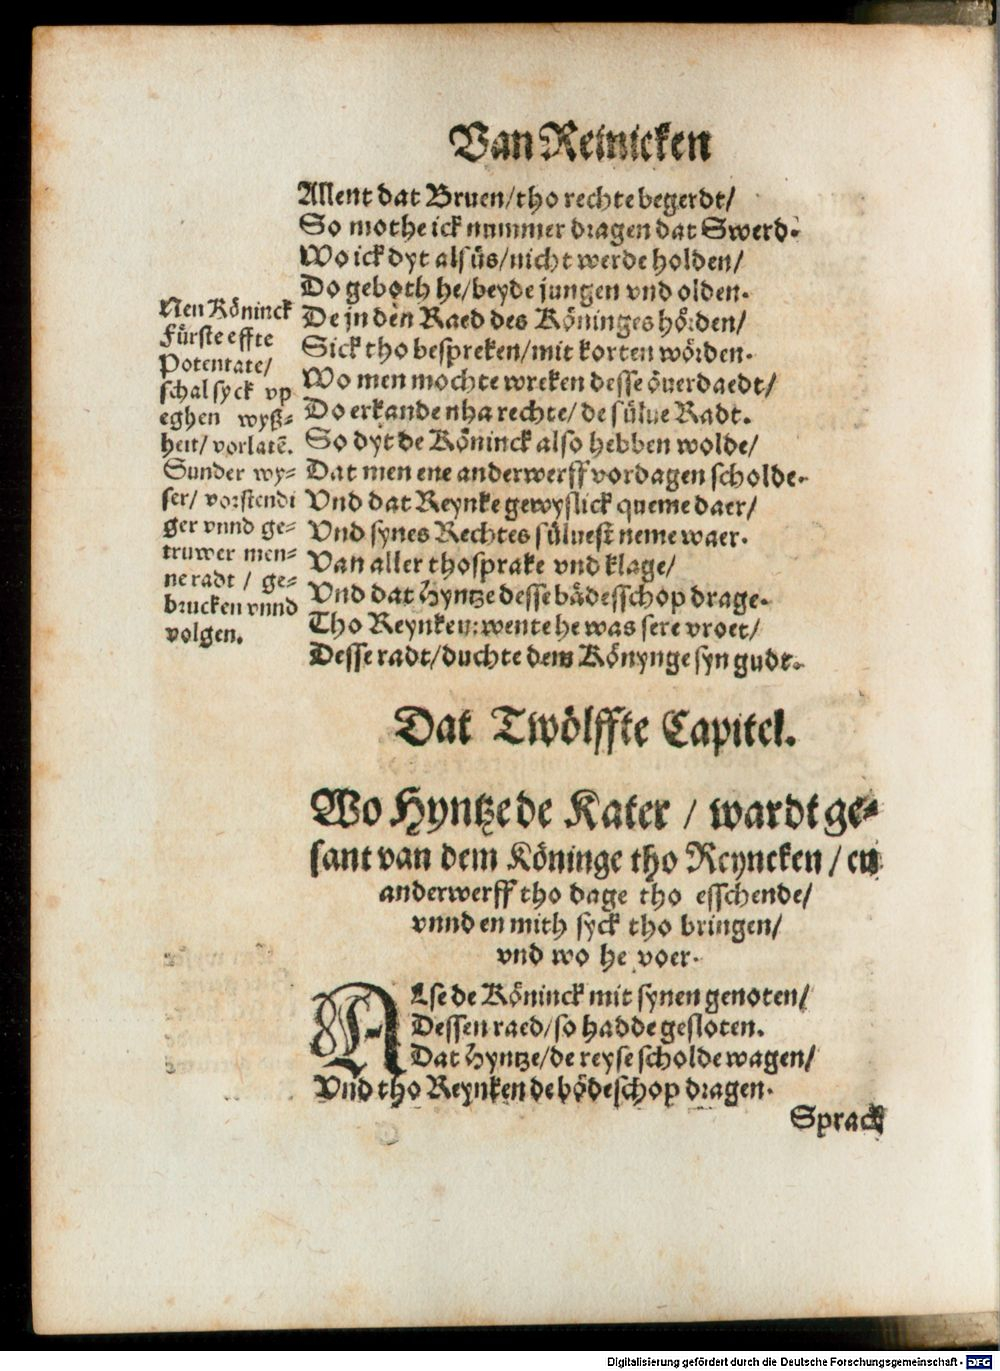 Van Reinicken
Allent dat Bruen/tho rechte begerdt/
So mothe ick nummer dragen dat Swerd.
Wo ick dyt alsüs/nicht werde holden/
Do geboth he/beyde jungen vnd olden.
De jn den Raed des Köninges hörden/
Sick tho bespreken/mit korten wörden.
Wo men mochte wreken desse öuerdaedt/
Do erkande nha rechte/de sülue Radt.
So dyt de Köninck also hebben wolde/
Dat men ene anderwerff vordagen scholde.
Vnd dat Reynke gewyslick queme daer/
Vnd synes Rechtes süluest neme waer.
Van aller thosprake vnd klage/
Vnd dat Hyntze desse bädesschop drage.
Tho Reynken: wente he was sere vroet/
Desse radt/duchte dem Könynge syn gudt.
Nen Köninck
Fürste effte
Potentate/
schal syck vp
eghen wyß-
heit/vorlatē.
Sunder wy-
ser/vorstendi
ger vnnd ge-
truwer men-
ne radt / ge-
brucken vnnd
volgen.
Dat Twölffte Capitel.
Wo Hyntze de Kater / wardt ge-
sant van dem Köninge tho Reyncken / en
anderwerff tho dage tho esschende/
vnnd en mith syck tho bringen/
vnd wo he voer.
Alse de Köninck mit synen genoten/
Dessen raed/so hadde gesloten.
Dat Hyntze/de reyse scholde wagen/
Vnd tho Reynken de bödeschop dragen.
Sprack
Digitalisierung gefördert durch die Deutsche Forschungsgemeinschaft - DFG